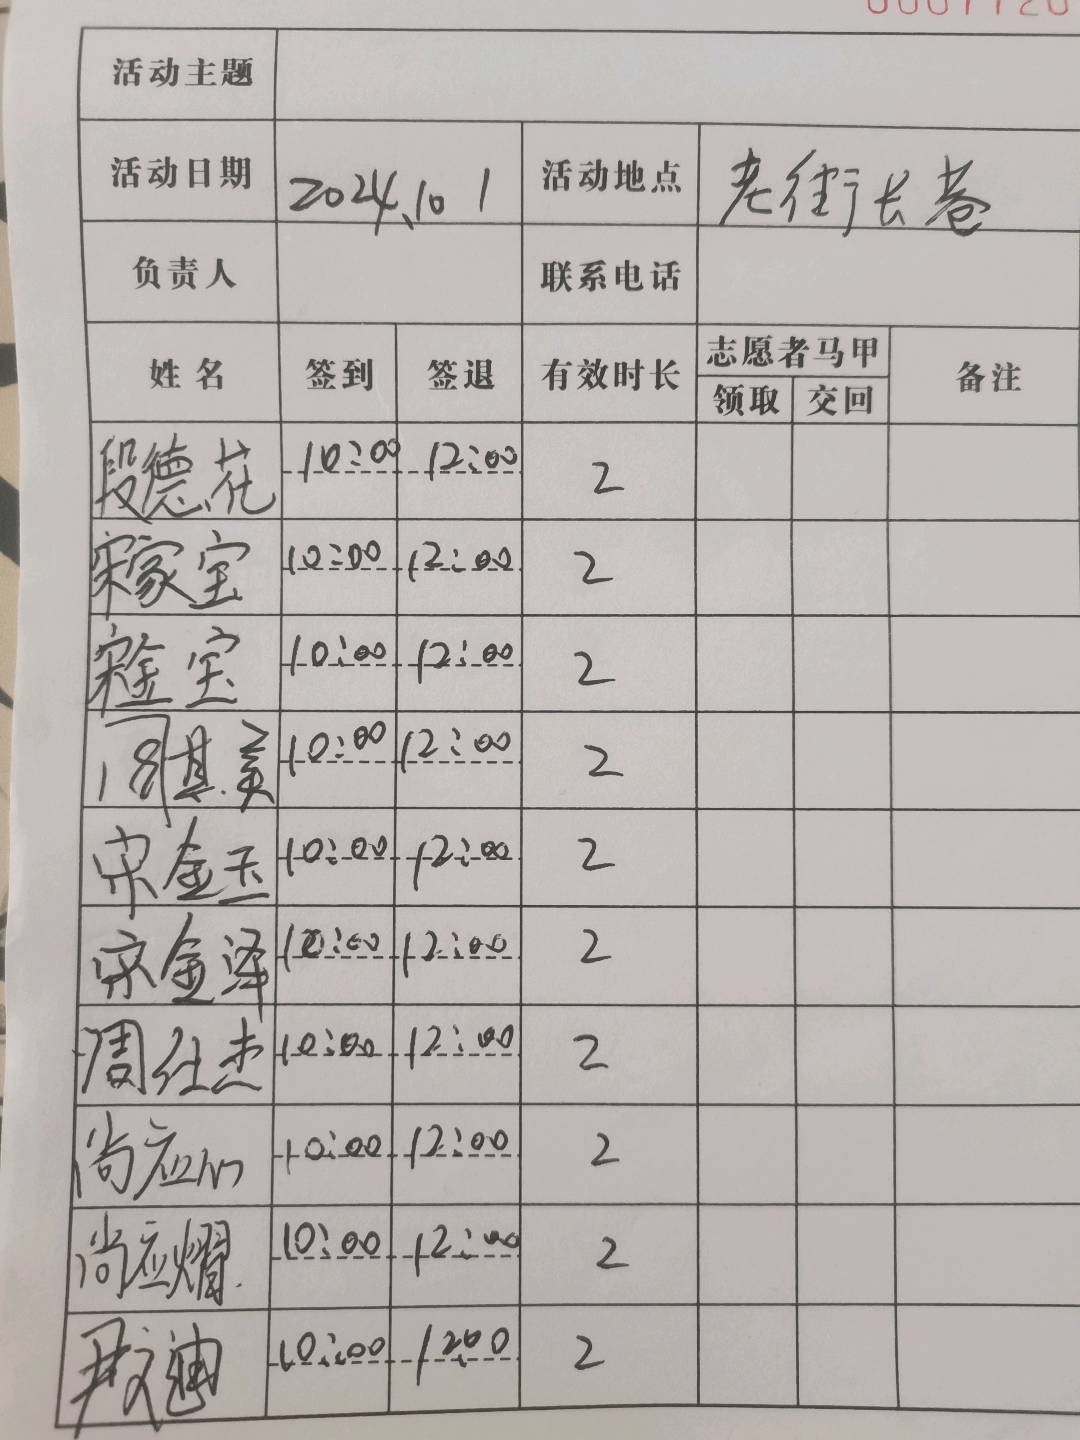 活动主题
活动日期 2024.10 1 活动地点 老街长巷
负责人 联系电话
姓名 签到 签退 有效时长 志愿者马甲 备注
领取 交回
段德花 10:00 12:00 2
宋家宝 10:00 12:00 2
宋金宝 10:00 12:00 2
周其美 10:00 12:00 2
宋金玉 10:00 12:00 2
宋金泽 10:00 12:00 2
周仕杰 10:00 12:00 2
尚应 10:00 12:00 2
尚应熠 10:00 12:00 2
尹文迪 10:00 1200 2